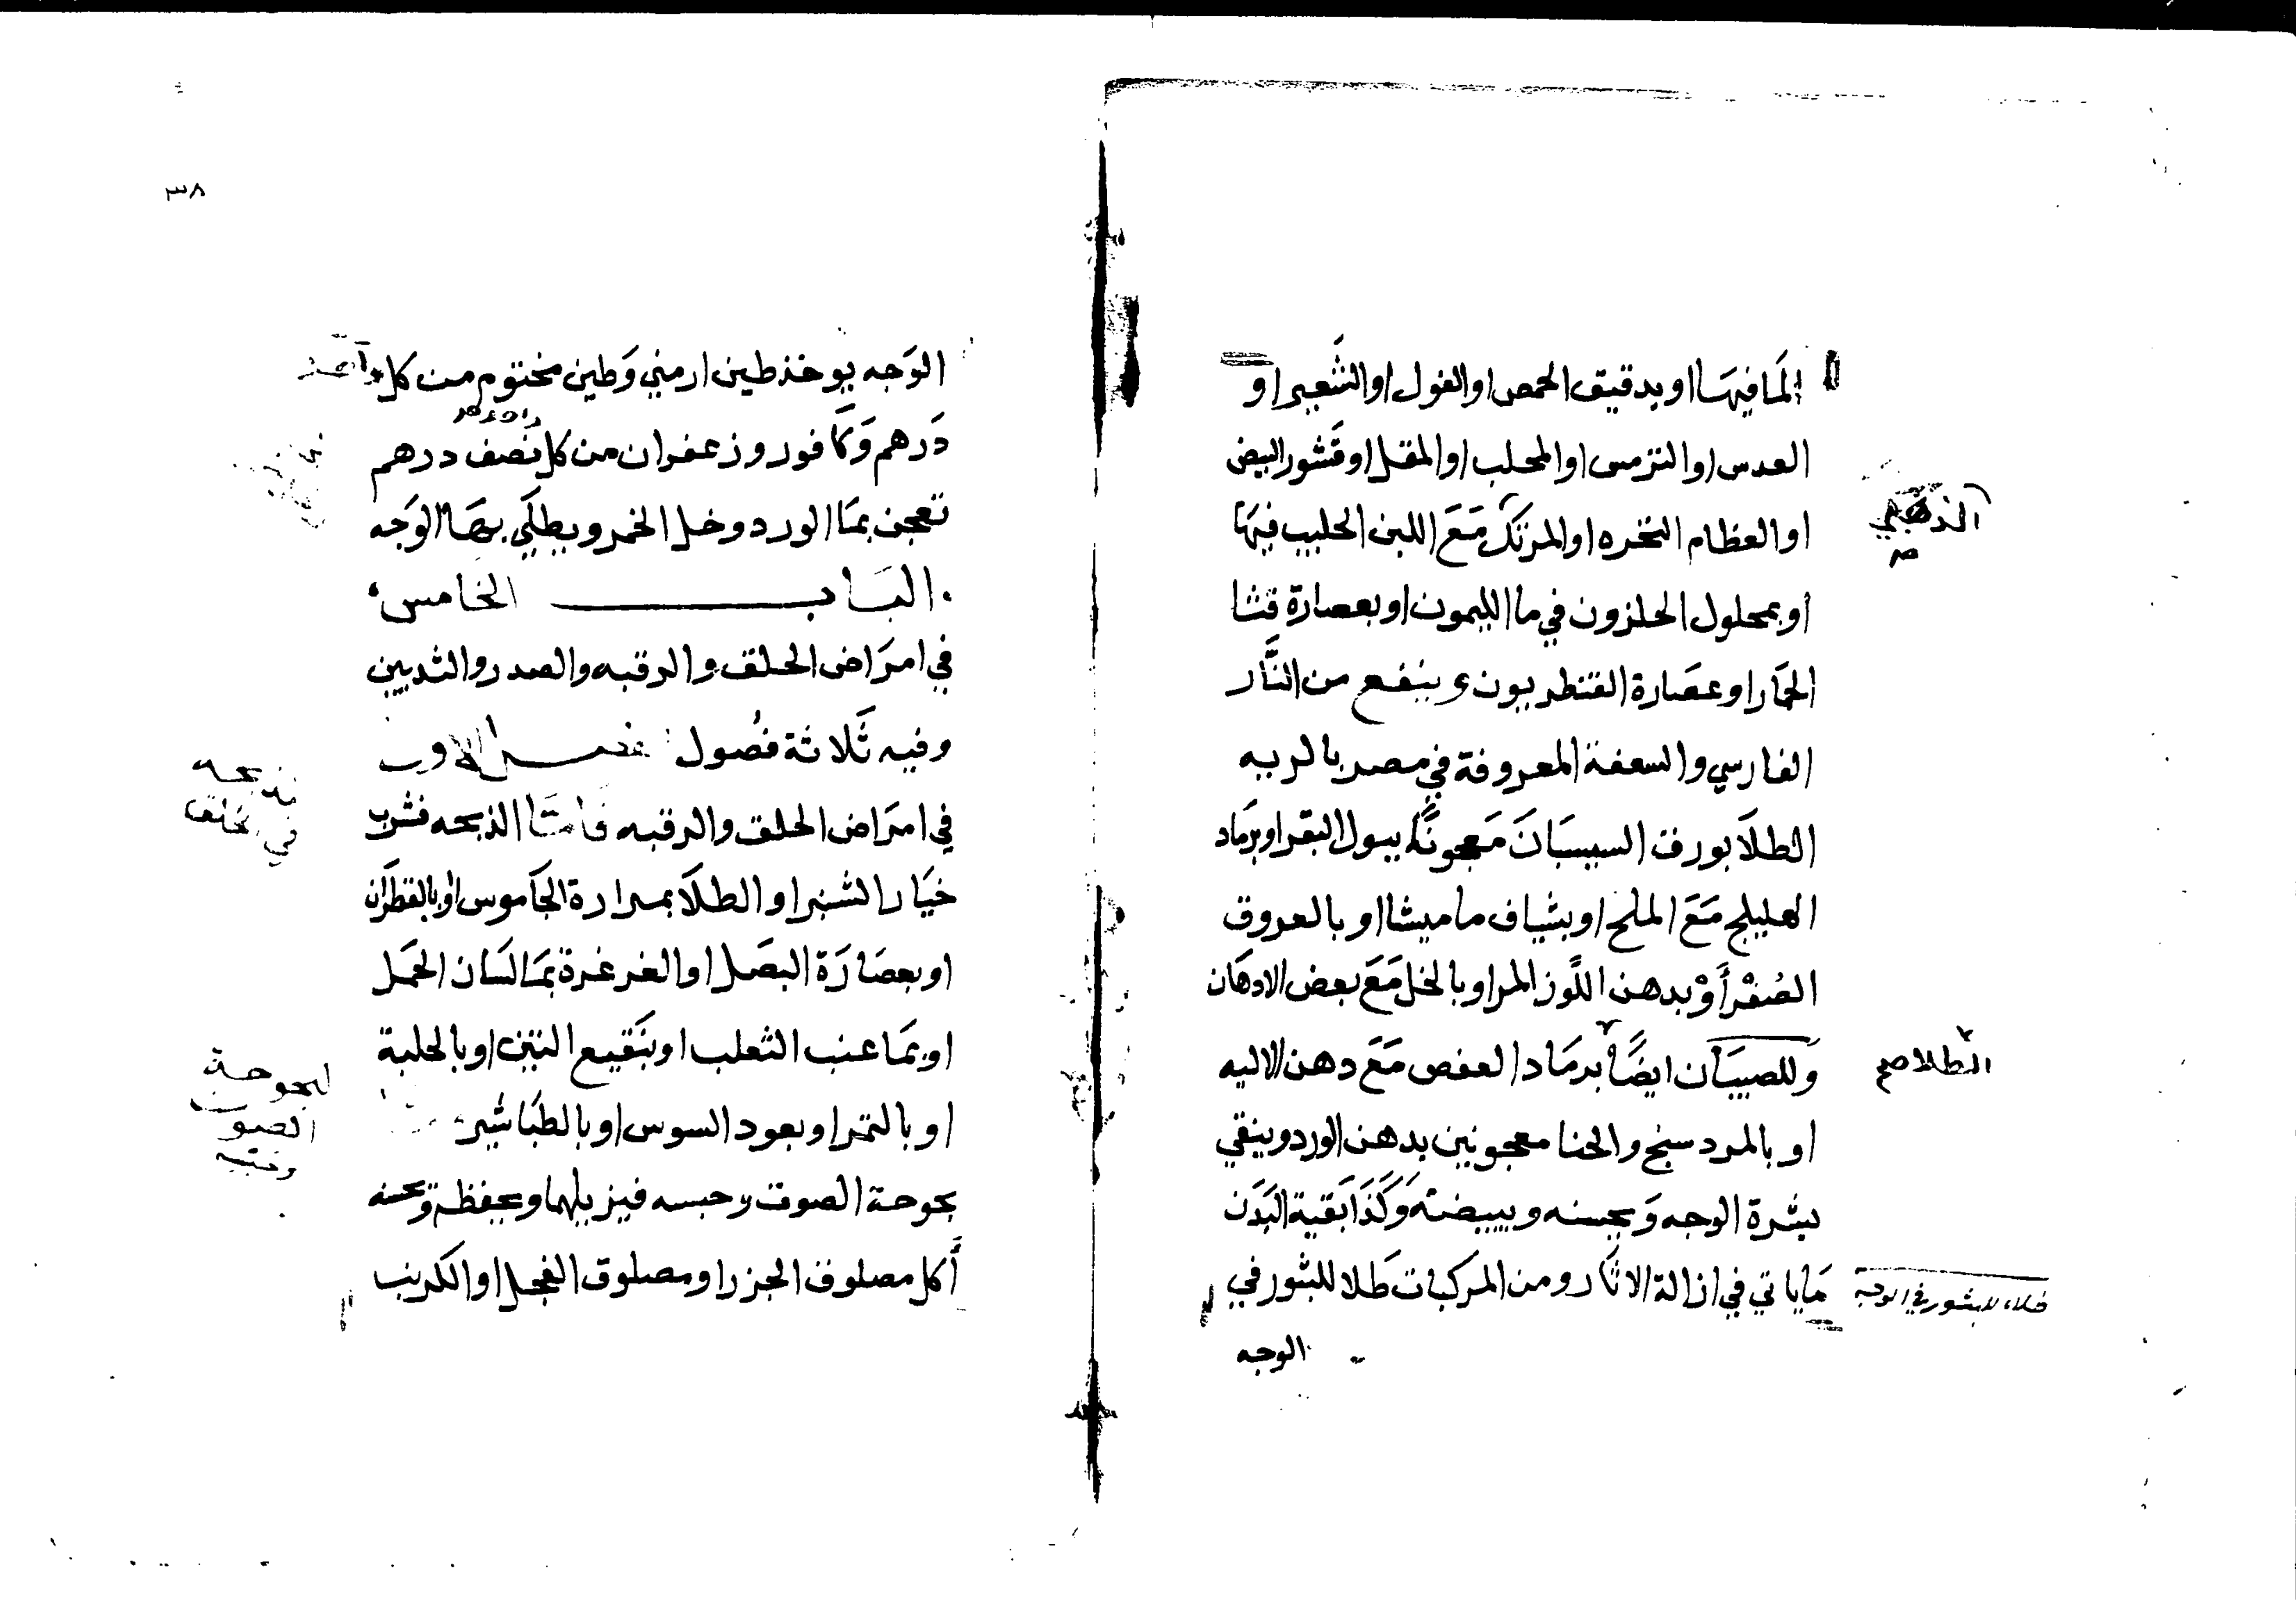 المَا فيهَا او بدقيق الحمص او الفول او الشَعير او
العدس او الترمس او المحلب او المقل او قشور البيض
او العظام النخره او المرتك مَعَ اللبن الحليب فيهَا
الذهبي
صح
او بمحلول الحلزون في ما الليمون او بعصارة قثا
الحمَار او عصَارة القنطريون وينفع من النَّار
الفارسي والسعفة المعروفة في مصر بالربيه
الطلَا بورق السيسبَان مَعجونًا ببول البقر او برمَاد
الهليلج مَعَ الملح او بشياف ماميثا او بالعروق
الصُفْر أَوْ بدهن اللَوز المر او بالخل مَعَ بعض الادهَان
وللصبيَان ايضًا برمَاد العفص مَعَ دهن الاليه
الطلا صح
او بالمردسنج والحنا معجونين بدهن الورد وينقي
بشرة الوجه وَيحسنه ويبيضه وَكَذَا بَقية البَدَن
مَا ياتي في ازالة الاثَار ومن المركبات طَلا للبثور في
طلاء للبثور في الوجه
الوجه
٣٨
الوَجه يوخذ طين ارمني وَطين مختوم من كل واحد
دَرهم وَكَافور وزعفران من كل واحد نصف درهم
تعجن بمَا الورد وخل الخمر ويطلَي بهَا الوَجه
البَاب الخامس
في امرَاض الحلق والرقبه والصدر والثديين
وفيه ثَلاثة فصُول الاول
في امرَاض الحلق والرقبه فامَّا الذبحه فشرب
في الحلق
خيَار الشنبر او الطلَا بمرارة الجَاموس او بالقطرَان
او بعصَارَة البصَل او الغرغرة بمَا لسَان الحمَل
او بمَا عنب الثعلب او بنَقيع التين او بالحلبة
او بالتمر او بعود السوس او بالطبَاشير
لبحوحة
الصوت
بحوحة الصوت وحبسه فيزيلهما ويحفظه ويحسنه
أكل مصلوق الجزر او مصلوق الفجل او الكرنب